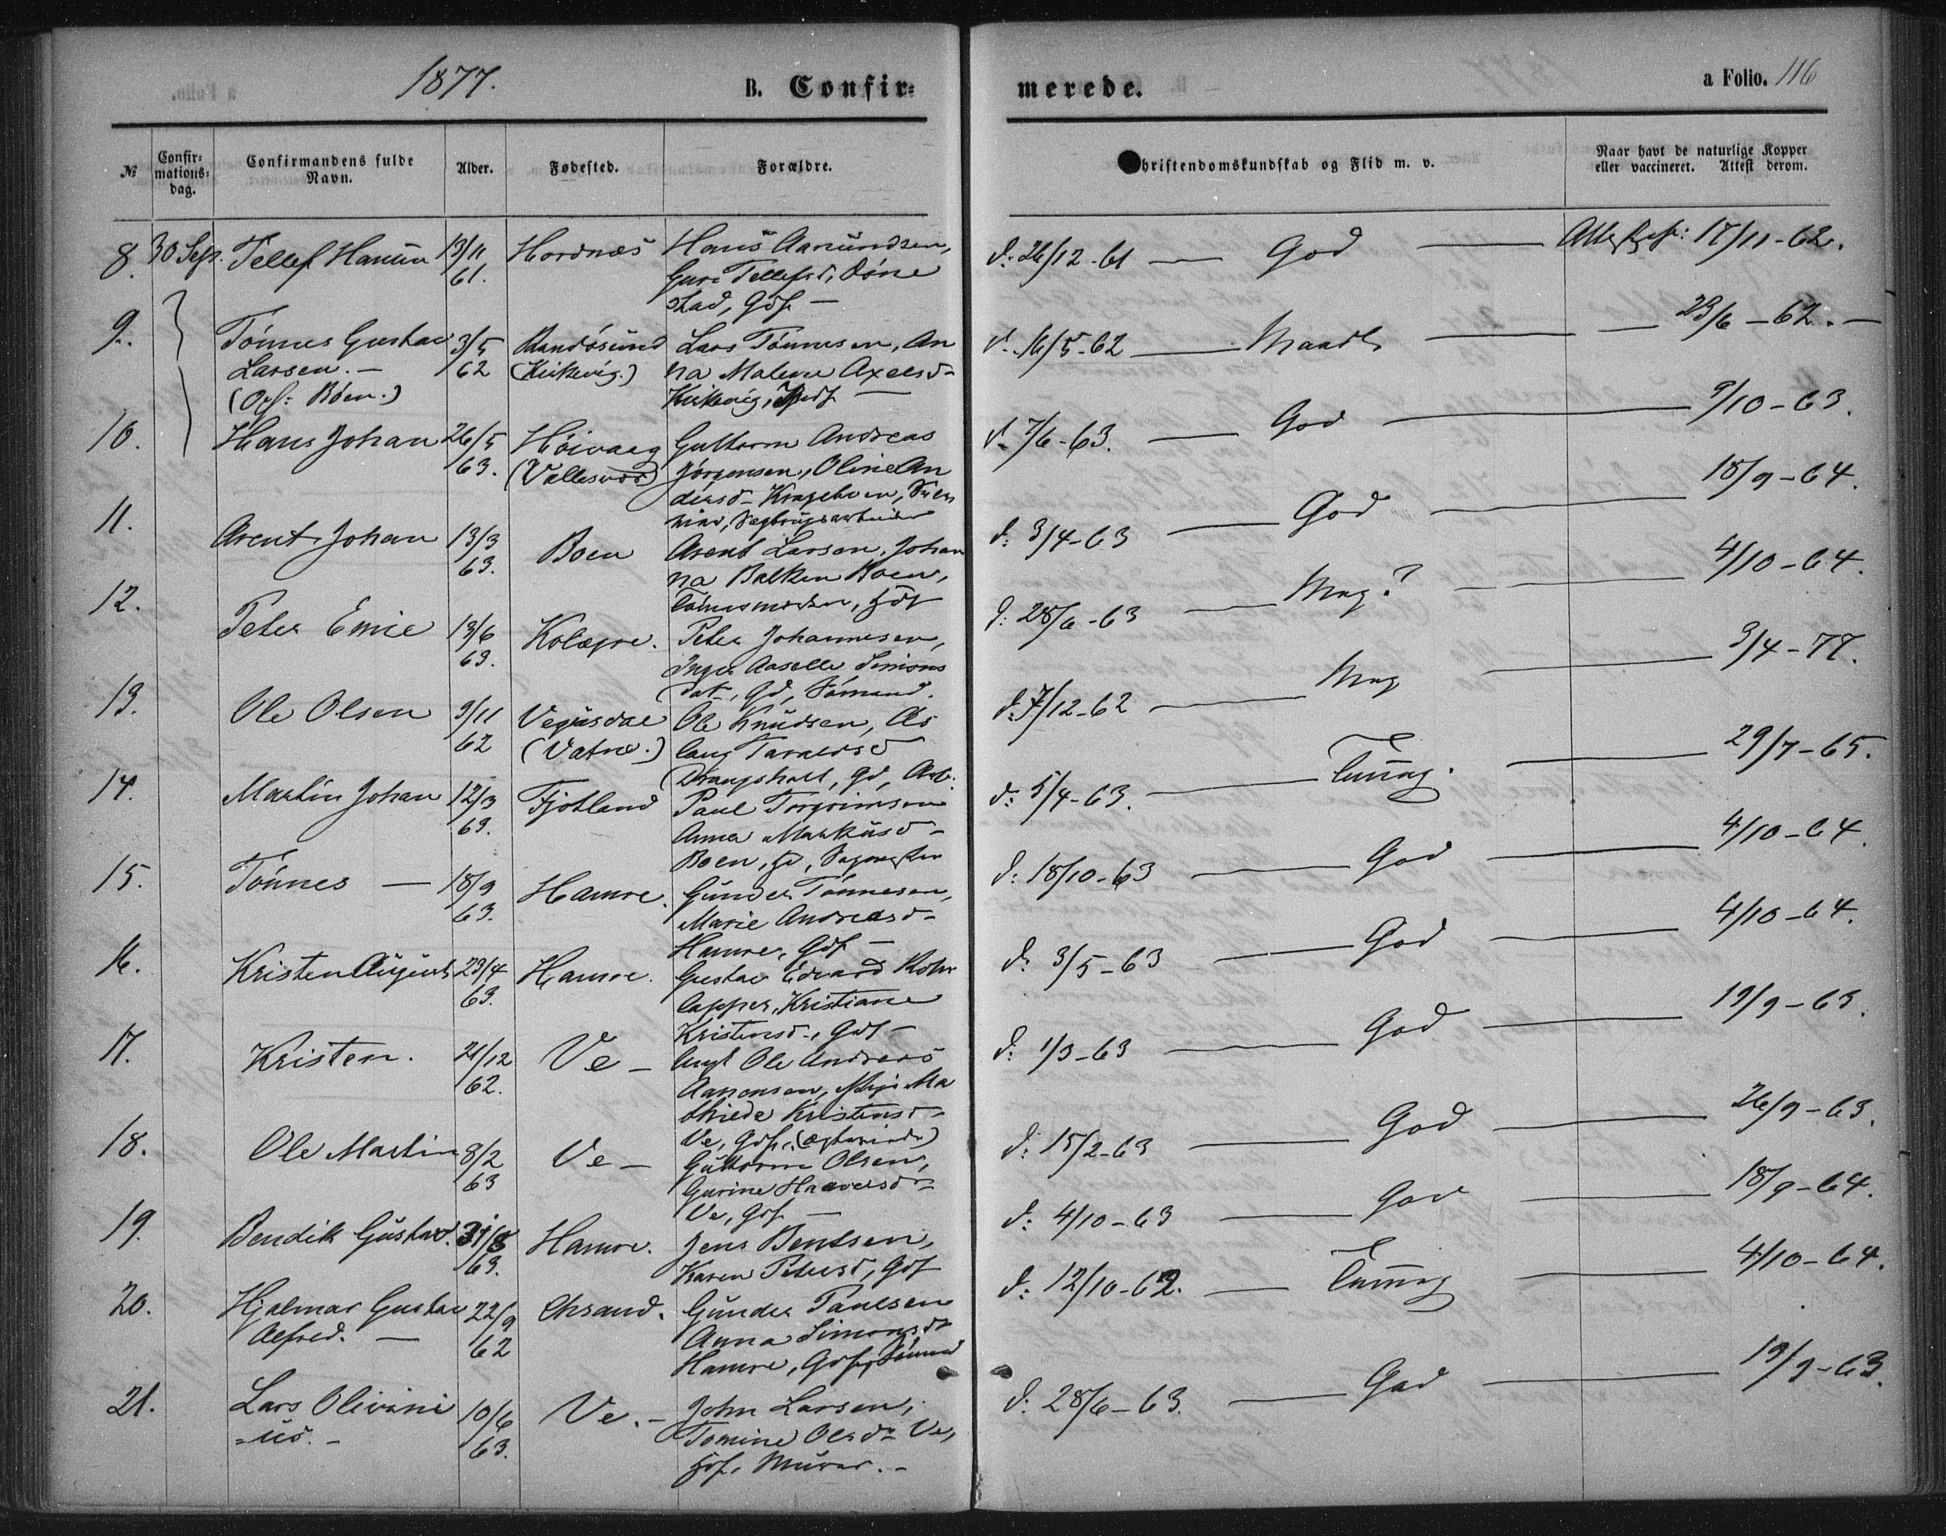 1877.
B. Confir-
merede.
a Folio. 116
№
Confir-
mations-
dag.
Confirmandens fulde
Navn.
Alder.
Fødested.
Forældre.
Christendomskundskab og Flid m. v.
Naar havt de naturlige Kopper
eller vaccineret. Attest derom.
8. 30 Sep. Tellef Hansen 13/11 61. Hordnæs Hans Aanundsen,
Guri Tellefsd, Døne
stad, Gdf —
d: 26/12-61 — God — 17/11-62.
9. Tønnes Gustav 3/5 62 Randøsund Lars Tønnesen, An
Larsen. — (Kirkevig.) na Malene Axelsd-
(Opf: Boen.) Kirkevig,
d. 16/5-62 — Maadl. — 23/6-62. —
10. Hans Johan 26/5 63. Høivaag Guttorm Andreas
(Vallesvær) Jørgensen, Oline An
dersd- Krageboen,
Sagbrugsarbeider
d. 7/6-63. — God — 9/10-63.
11. Arent Johan 13/3 63. Boen Arent Larsen, Johan
na Balken Boen,
Tømmermester, Hdf
d: 3/4-63 — God — 18/9-64.
12. Peter Emil 13/6 63. Peter Johannesen,
Inger Aaselle Simons
dat-, Gd, Sømand.
d: 28/6-63 — Mag? — 4/10-64.
13. Ole Olsen 9/11 62 Vegusdal Ole Knudsen, As
(Vatne.) laug Taraldsd
Drangsholt, Gd, Arb.
d: 7/12-62 — Mag — 3/4-77.
14. Martin Johan 12/3 63. Fjotland Paul Torgrimsen
Anna Markusd-
Boen, Sagmester
d: 5/4-63. — — 29/7-65.
15. Tønnes — 18/9 63. Hamre. Gunder Tønnesen,
Marie Andreasd-
Hamre, Gdf —
d: 18/10-63 — God — 4/10-64.
16. Kristen August 23/4 63. Hamre. Gustav Edvard
Kristiane
Kristensd-, Gdf —
d: 3/5-63 — God — 4/10-64.
17. Kristen. 21/12 62. Ve — Ole Andreas
Aanonsen, Ma
thilde Kristensd-
Ve, Gdf,
d: 1/3-63 — God — 19/9-63.
18. Ole Martin 8/2 63 Ve — Guttorm Olsen,
Gurine Haaversd-
Ve, Gdf —
d: 15/2-63 — God — 26/9-63.
19. Bendik Gustav. 31/8 63. Hamre. Jens Bentsen,
Karen Petersd, Gdf
d: 4/10-63 — God — 18/9-64.
20. Hjalmar Gustav 22/9 62 Chrsand. Gunder Paulsen
Alfred. — Anna Simonsdt
Hamre, Gdf, Sømand
d: 12/10-62. — — 4/10-64.
21. Lars Olivini 10/6 63. Ve. — John Larsen,
=us. — Tomine Olsd- Ve,
Hdf, Murer. —
d: 28/6-63. — God — 19/9-63.